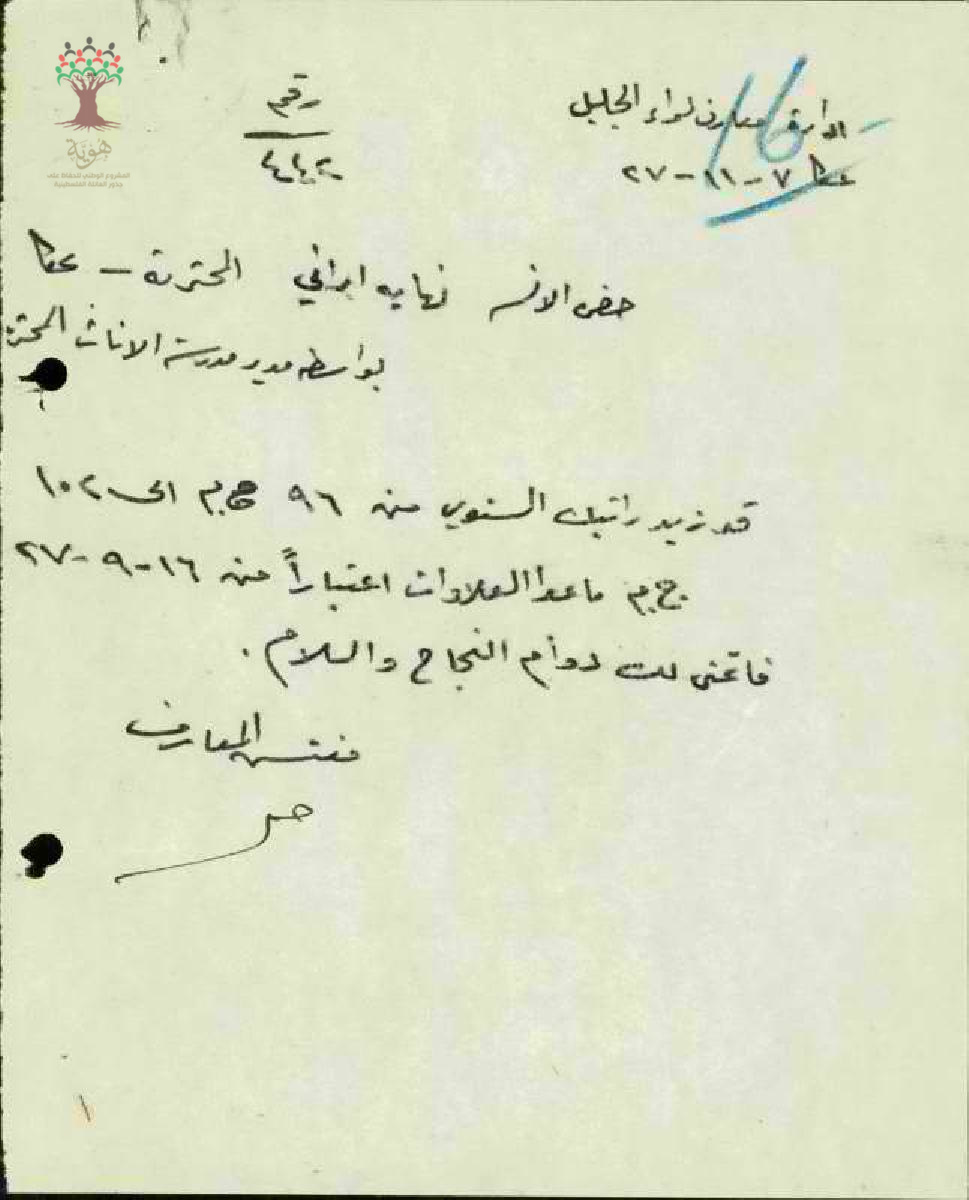 ادارة معارف لواء الجليل
عكا ٧-١١-٢٧
16
رقم
٤٤٢
هوية
المشروع الوطني للحفاظ على
جذور العائلة الفلسطينية
حضرة الانسه نهايه ايراني المحترمة – عكا
بواسطه مدير مدرسة الاناث المحترمة
قد زيد راتبك السنوي من ٩٦ ج.م الى ١٠٢
ج.م ما عدا العلاوات اعتباراً من ١٦-٩-٢٧
فاتمنى لك دوام النجاح والسلام.
مفتش المعارف